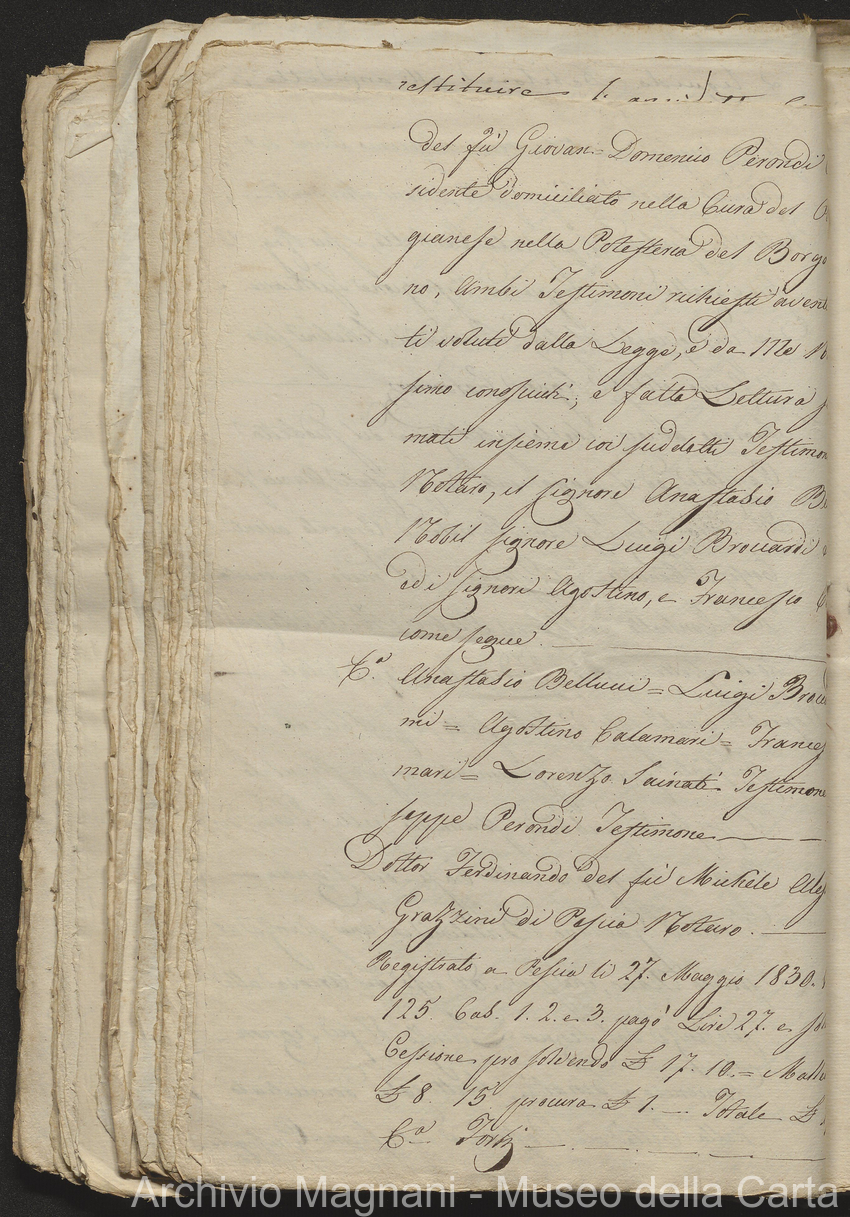 restituire
del fù Giovan=Domenico Perondi
sidente domiciliato nella Cura del
gianese nella Potesteria del Borgo
no, ambi Testimoni richiesti avent
ti volute dalla Legge, e da Me N
simo conosciuti; e fatta Lettura
mati insieme coi suddetti Testimon
Notaro, il signore Anastasio B
Nobil signore Luigi Brocardi
ed i signori Agostino, e Francesco
come segue.
C.a Anastasio Bellucci = Luigi Broca
ni = Agostino Calamari = Frances
mari = Lorenzo Sainati Testimone
seppe Perondi Testimone
Dottor Ferdinando del fù Michele
Grazzini di Pescia Notaro.
Registrato a Pescia li 27. Maggio 1830.
125. Cas. 1. 2. e 3. pagò Lire 27. e so
Cessione pro solvendo £ 17. 10. =
£ 8. 15 procura £ 1. — Totale £
C.a Forti
Archivio Magnani - Museo della Carta